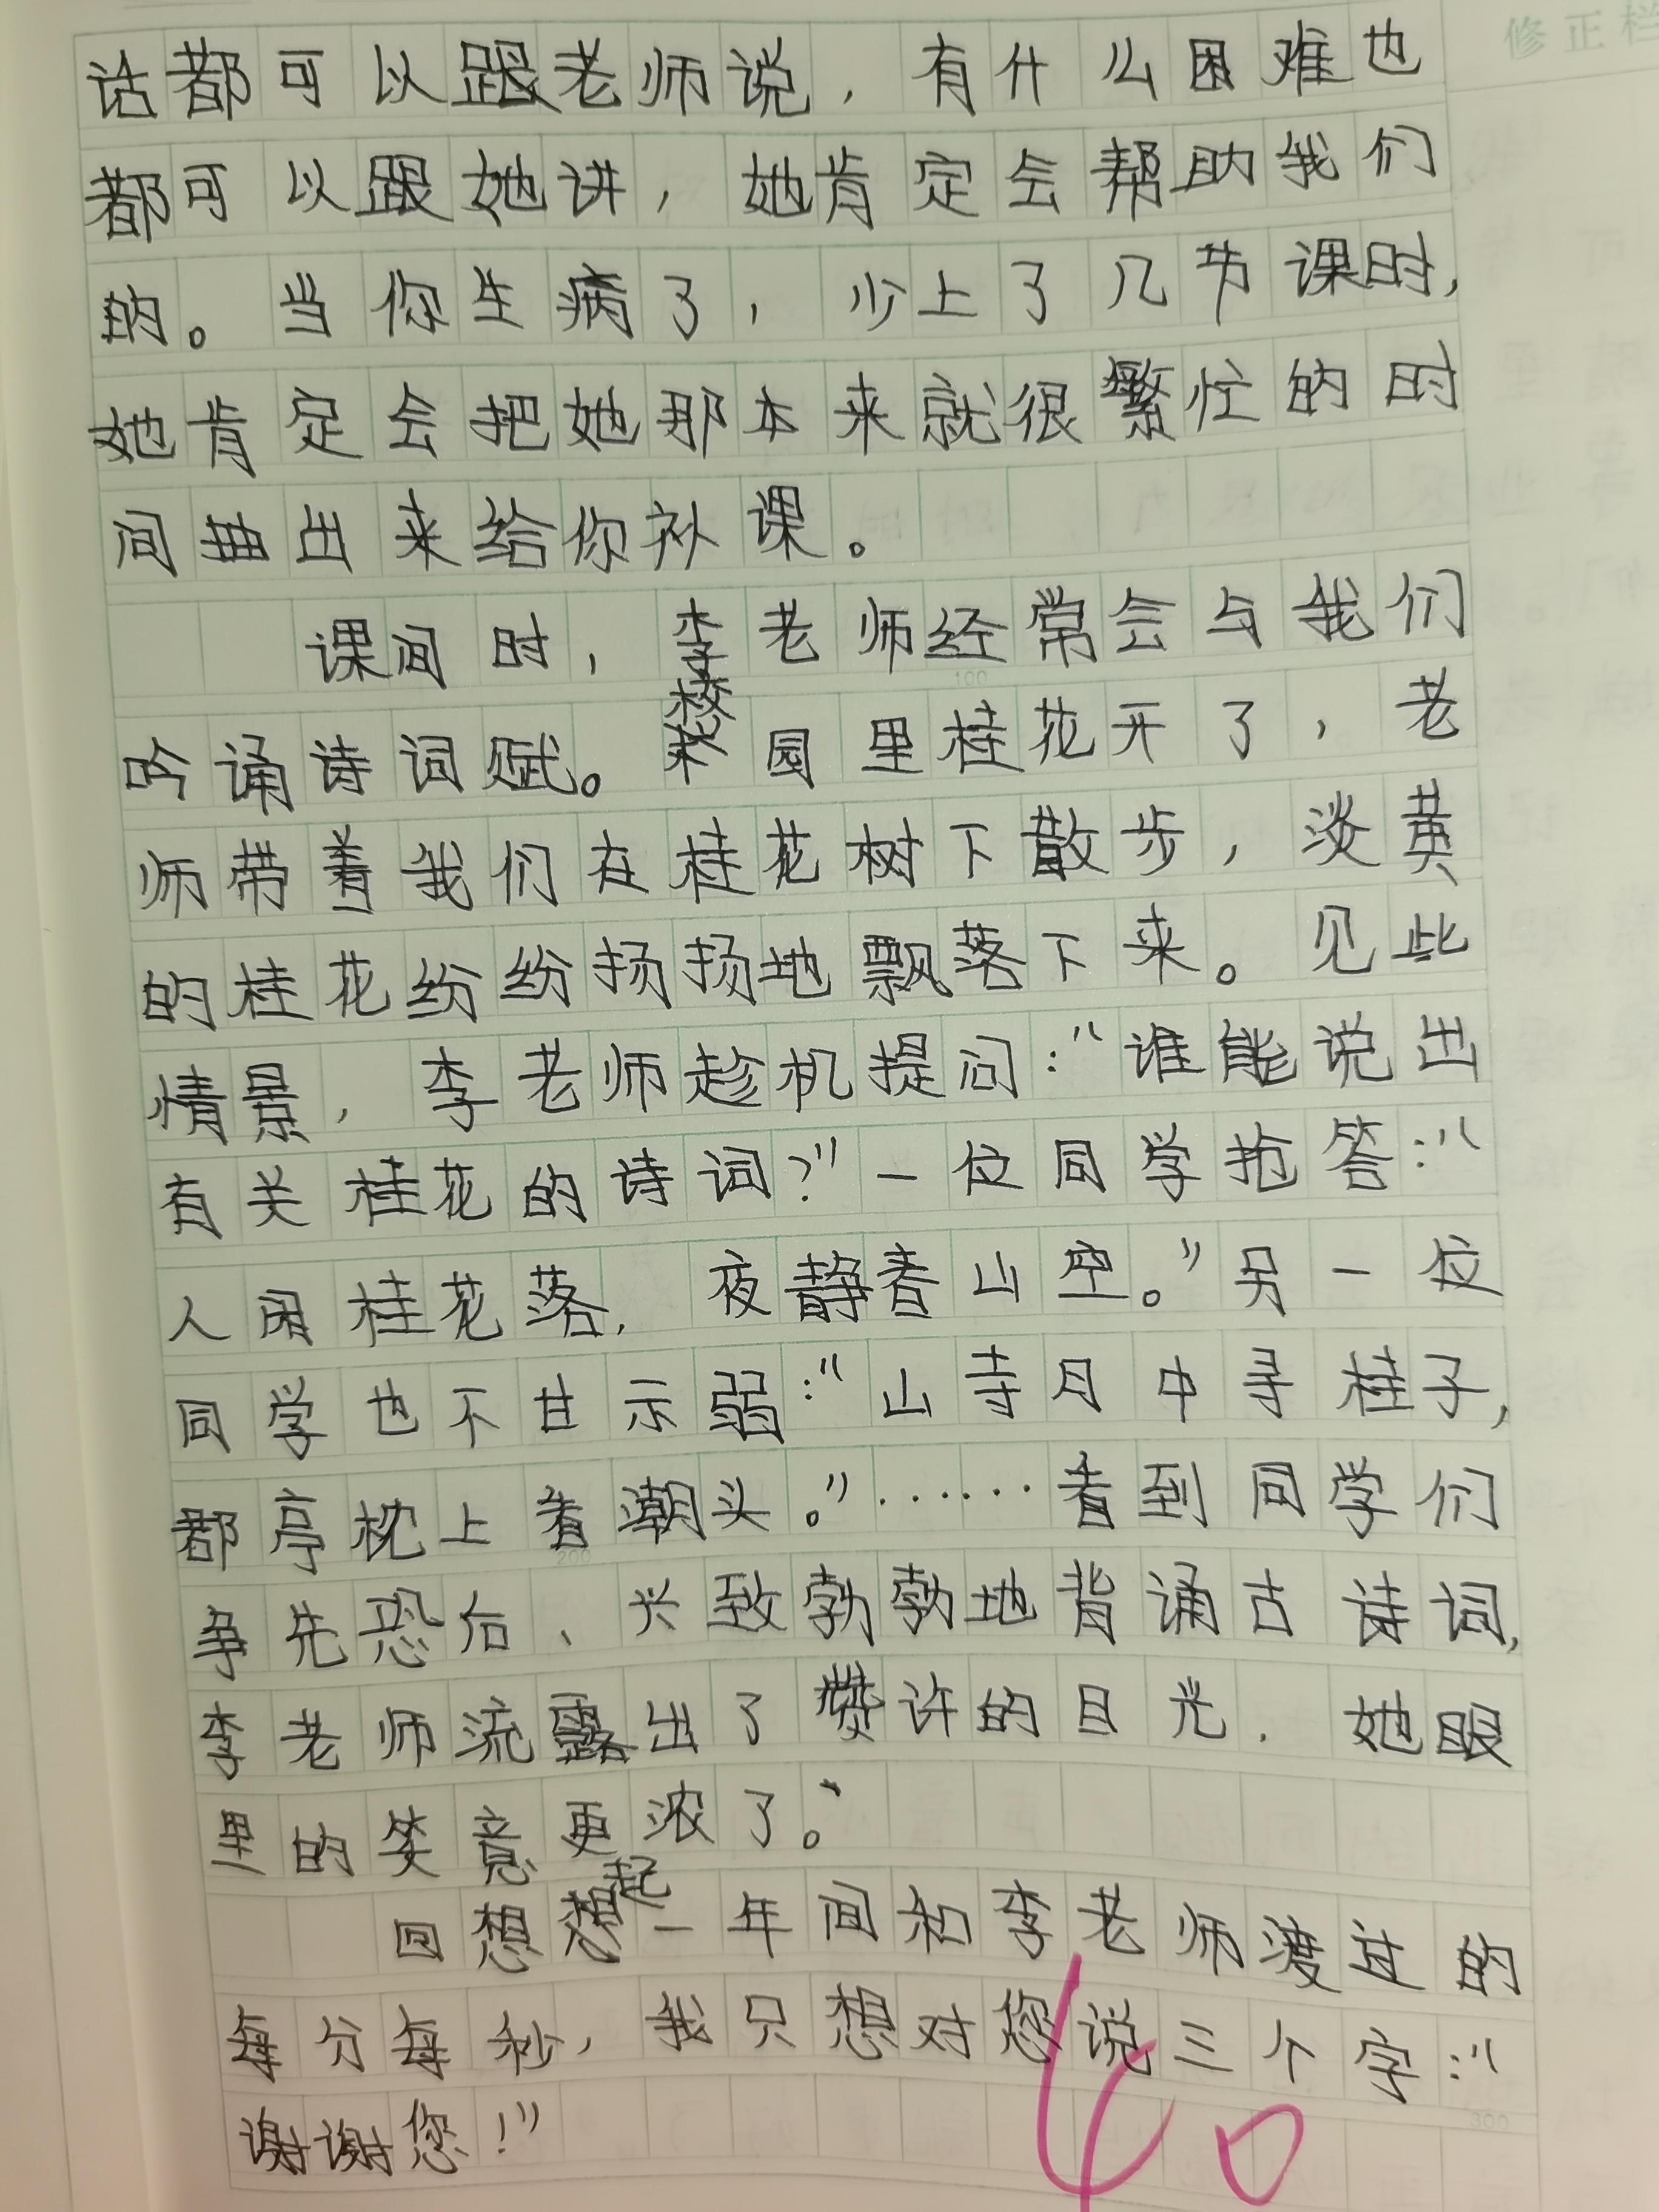 修正栏
话都可以跟老师说，有什么困难也
都可以跟她讲，她肯定会帮助我们
的。当你生病了，少上了几节课时，
她肯定会把她那本来就很繁忙的时
间曲出来给你补课。
课间时，李老师经常会与我们
吟诵诗词赋。校园里桂花开了，老
师带着我们在桂花树下散步，淡黄
的桂花纷纷扬扬地飘落下来。见此
情景，李老师趁机提问：“谁能说出
有关桂花的诗词？”一位同学抢答：“
人闲桂花落，夜静春山空。”另一位
同学也不甘示弱：“山寺月中寻桂子，
郡亭枕上看潮头。”……看到同学们
争先恐后、兴致勃勃地背诵古诗词，
李老师流露出了赞许的目光．她眼
里的笑意更浓了。
100
200
回想想起一年间和李老师渡过的
每分每秒，我只想对您说三个字：“
谢谢您！”
300
40